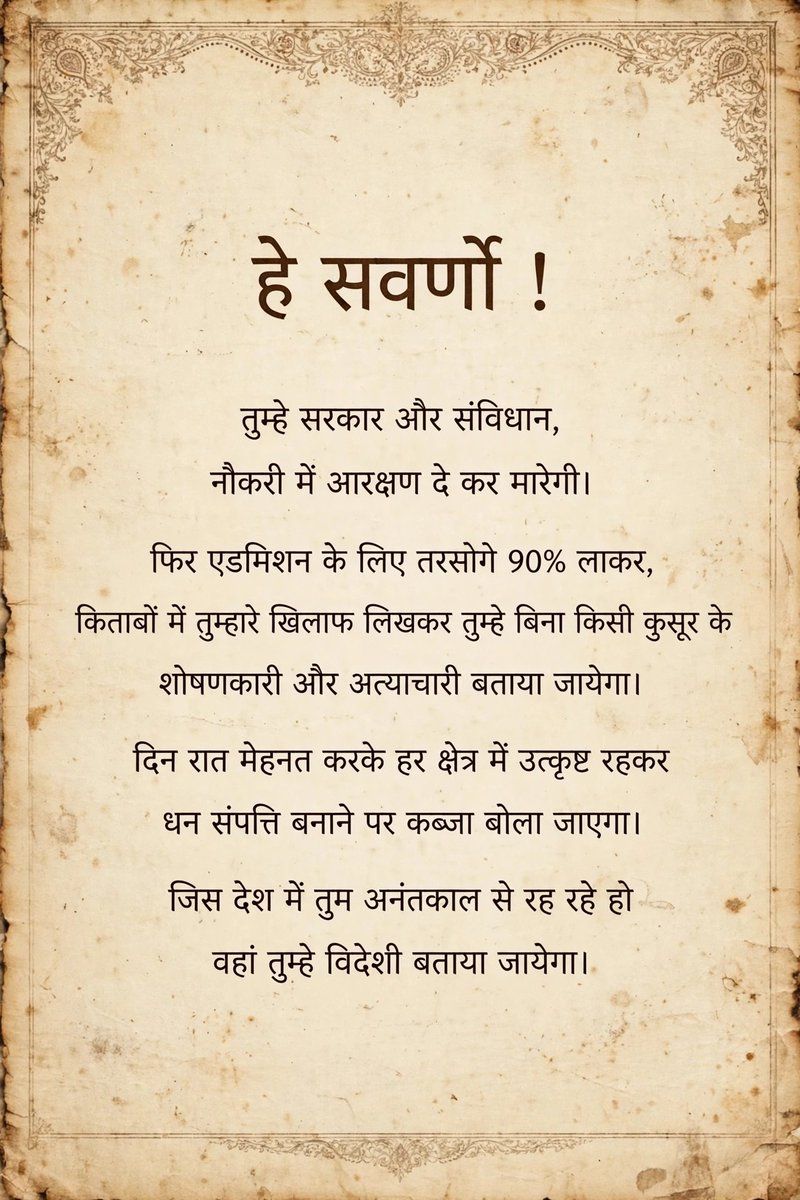 हे सवर्णो !
तुम्हे सरकार और संविधान,
नौकरी में आरक्षण दे कर मारेगी।
फिर एडमिशन के लिए तरसोगे 90% लाकर,
किताबों में तुम्हारे खिलाफ लिखकर तुम्हे बिना किसी कुसूर के
शोषणकारी और अत्याचारी बताया जायेगा।
दिन रात मेहनत करके हर क्षेत्र में उत्कृष्ट रहकर
धन संपत्ति बनाने पर कब्जा बोला जाएगा।
जिस देश में तुम अनंतकाल से रह रहे हो
वहां तुम्हे विदेशी बताया जायेगा।